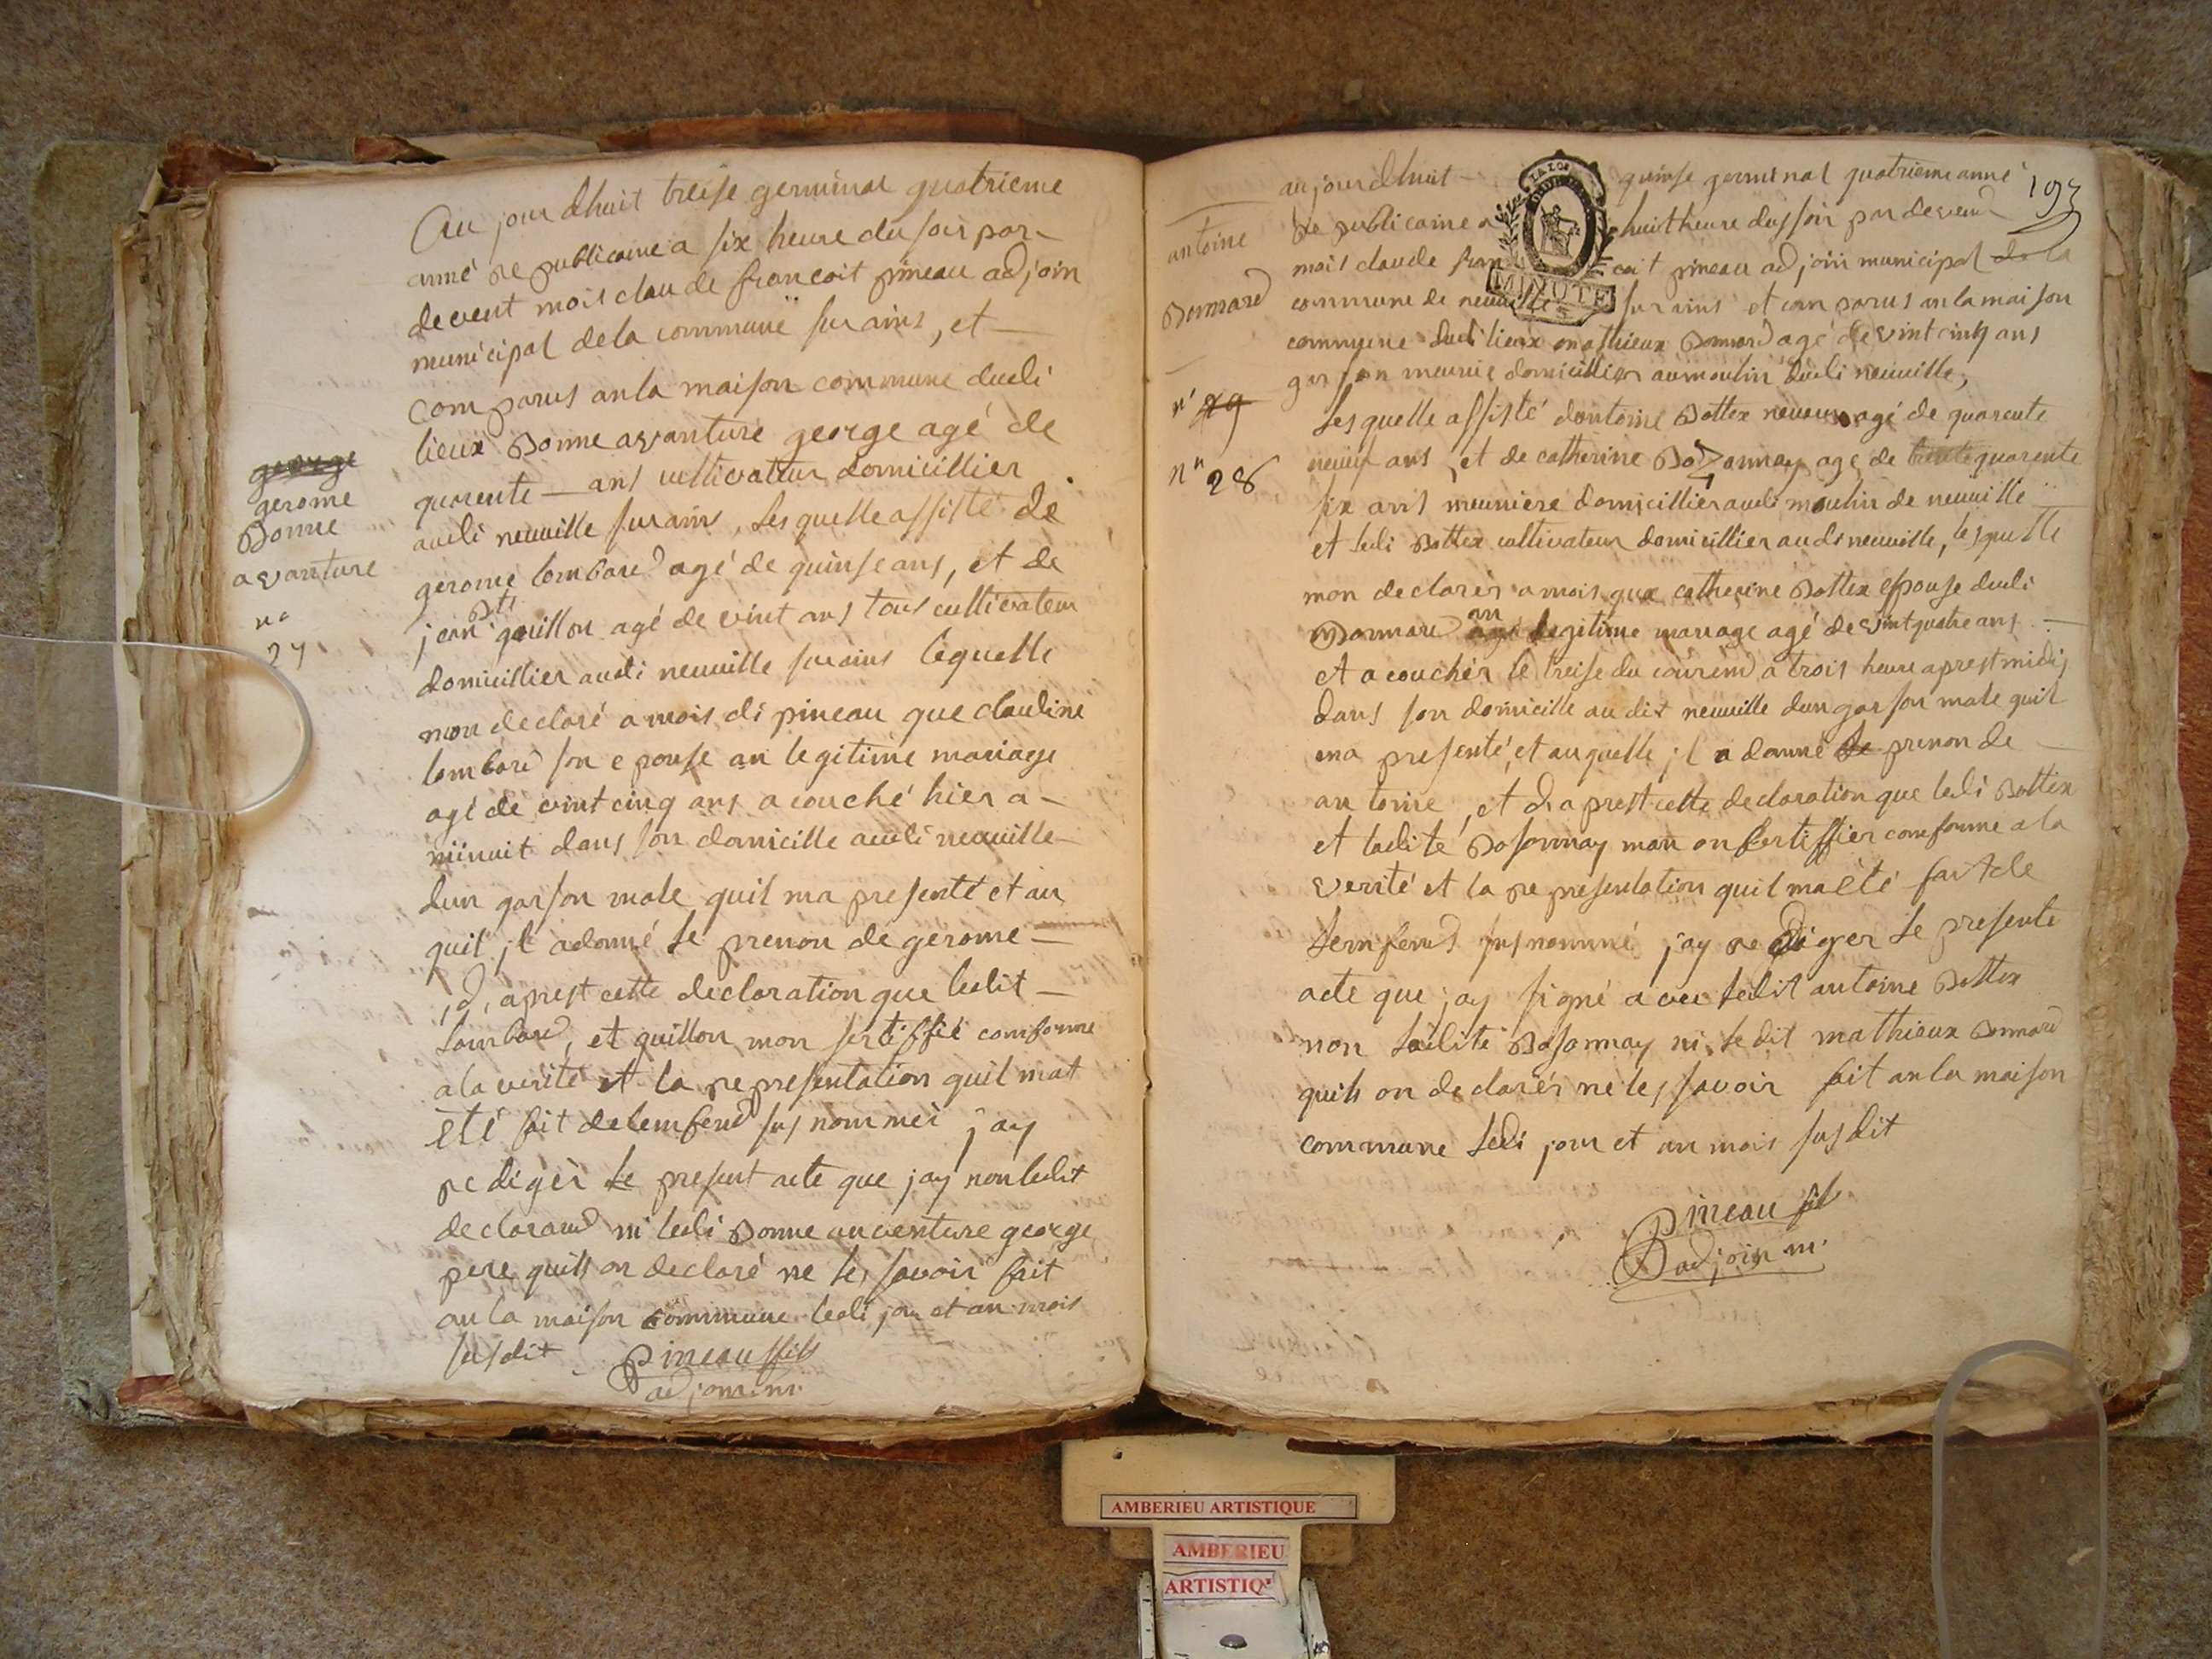 Au jour dhuit treise germinal quatrieme
anné republicaine a six heure du soir par-
devent mois claude francoit pineau adjoin
municipal dela commune sur ains, et —
comparus anla maison commune dudi
lieux Bonne avanture george agé de
quarente — ans cultivateur domicillier
audi neuville sur ains, lesquelle assisté de
gerome lombard agé de quinse ans, et de
jean Bte guillon agé de vint ans tous cultivateur
domicillier audi neuville sur ains lequelle
mon declaré a mois di pineau que claudine
lombard son epouse an legitime mariage
agé de vint cinq ans a couché hier a —
minuit dans son domicille audi neuville —
dun garson male quil ma presenté et au
quil jl adonné le prenon de gerome —
id, aprest cette declaration que ledit —
lombard, et guillon mon sertiffié comforme
ala verité et la representation quil mat
eté fait delemfend susnommei jay
redigèr le present acte que jay non ledit
declarand ni ledi Bonne avventure george
pere quils on declaré ne les savoir fait
anla maison commune ledi jou et an mois
susdit Pineau ffils
adjoin m.
george
gerome
Bonne
avanture
n°
27
193
aujourdhuit — quinse germinal quatrieme anné
Republicaine a huit heure dussoir pardevend
mois claude francoit pineau adjoin municipal de la
commune de neuville sur ains et comparus anla maison
commune dudi lieux mathieux Bonnard agé de vint cinq ans
garson meunié domicillier aumoulin dudi neuville,
Lesquelle assisté dantoine Bottex neuveux agé de quarente
neuf ans, et de catherine Bo onnay age de trente quarente
six ans meuniere domicillier audi moulin de neuville
et ledi Bottex cultivateur domicillier audi neuville, lesquelle
mon declarèr amois que catherine Bottex epouse dudi
Bonnard agé an legitime mariage agé de vint quatre ans —
et a couchèr le treise du courend a trois heure aprest midi
dans son domicille au dit neuville dun garson male quil
ma presenté, et auquelle jl a donné le prenon de —
antoine, et di aprest cette declaration que ledi Bottex
et ladite Bosonnay mon on sertiffier comforme ala
verité et la representation quil ma été fait de
lemfend susnommé jay rediger le presente
acte que jay signé avec ledit antoine Bottex
non ladite Bosonnay ni ledit mathieux Bonnard
quils on declarèr ne les savoir fait anla maison
commune ledi jour et an mois susdit
Pineau fils
adjoin m.
antoine
Bonnard
n° 29
n° 28
LA LOI
MINUTE
AMBERIEU ARTISTIQUE
AMBERIEU
ARTISTIQ